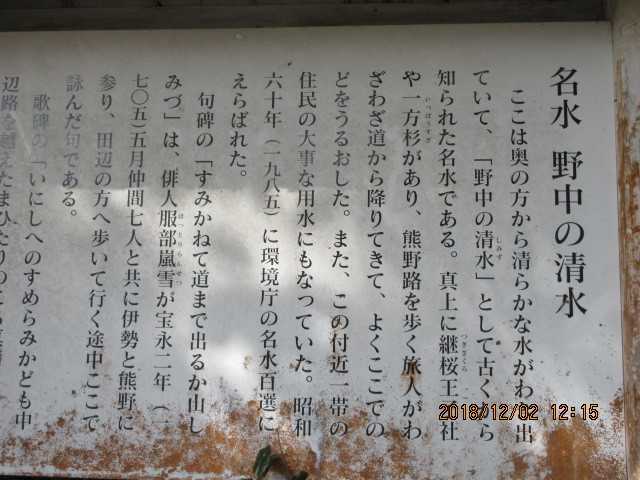 名水 野中の清水
ここは奥の方から清らかな水がわき出
ていて、「野中の清水」として古くから
しみず
知られた名水である。真上に継桜王子社
つぎざくら
や一方杉があり、熊野路を歩く旅人がわ
いっぽうすぎ
ざわざ道から降りてきて、よくここでの
どをうるおした。また、この付近一帯の
住民の大事な用水にもなっていた。昭和
六十年(一九八五)に環境庁の名水百選に
えらばれた。
句碑の「すみかねて道まで出るか山し
みづ」は、俳人服部嵐雪が宝永二年(一
はっとりらんせつ
七〇五)五月仲間七人と共に伊勢と熊野に
参り、田辺の方へ歩いて行く途中ここで
詠んだ句である。
歌碑の「いにしへのすめらみかども中
辺路を越えたまひたりのこる
2018/12/02 12:15